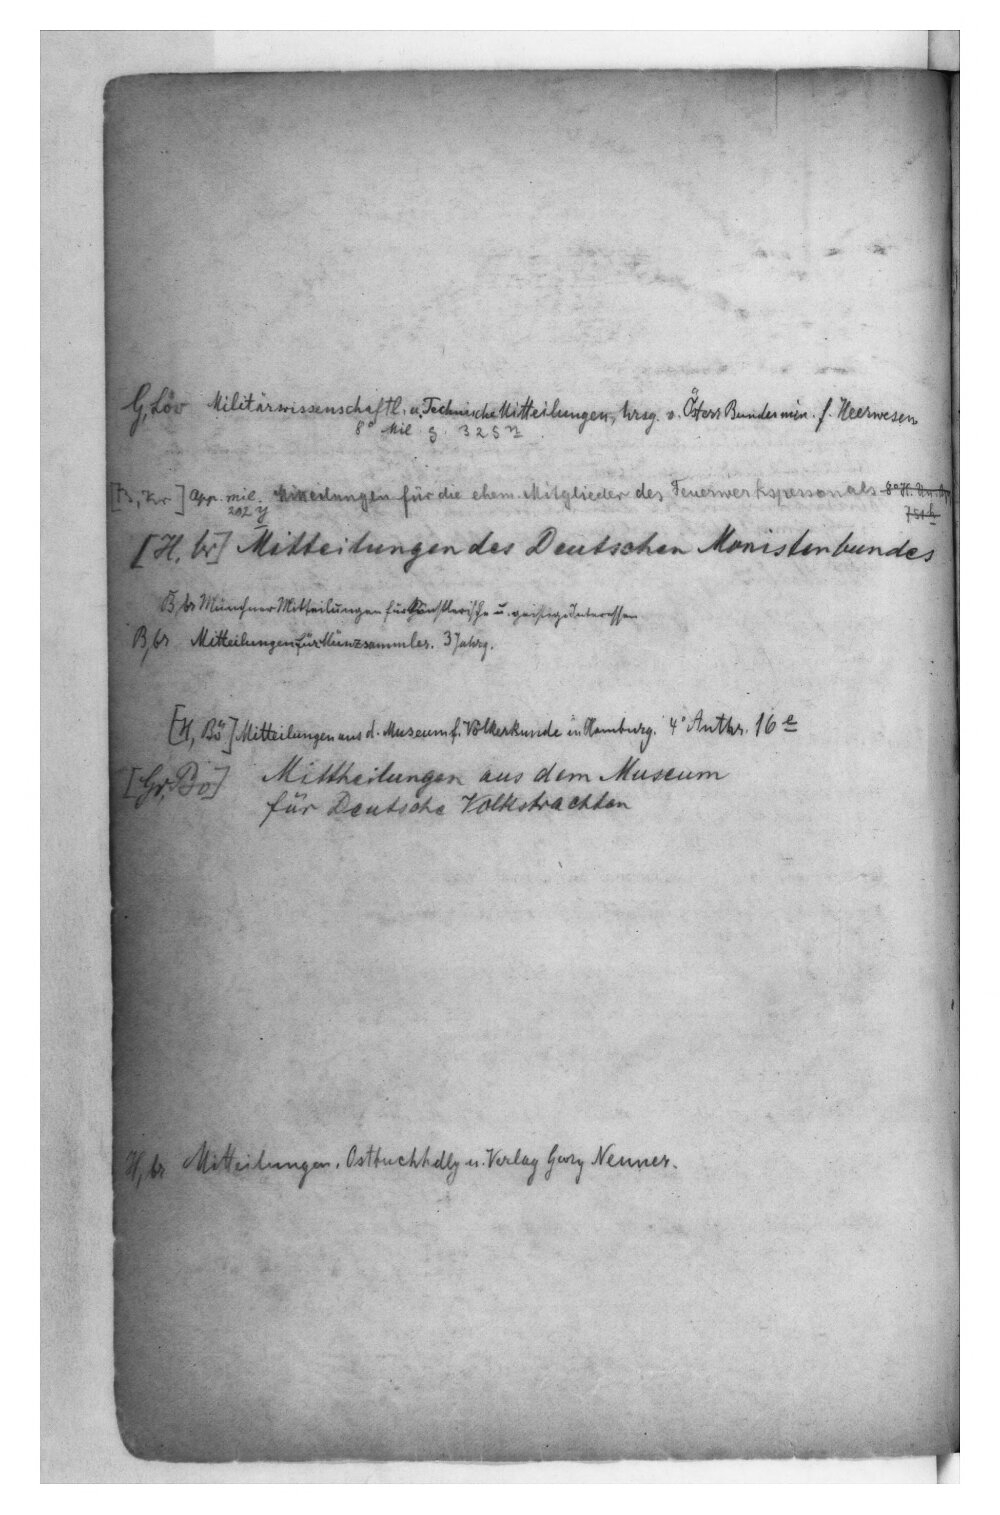 G, Löv Militärwissenschaftl. u. Technische Mitteilungen, hrsg. v. Österr Bundesmin. f. Heerwesen
8° Mil. g. 325 n
[B, Kr] App. mil. Mitteilungen für die ehem. Mitglieder des Feuerwerkspersonals 8° H. Un. App.
202 y 751 h
[H, br] Mitteilungen des Deutschen Monistenbundes
B, br Münchner Mitteilungen für künstlerische u. geistige Interessen
B, br Mitteilungen für Münzsammler. 3 Jahrg.
[H, Bö] Mitteilungen aus d. Museum f. Völkerkunde in Hamburg. 4° Anthr. 16 e
[Gr, Bö] Mittheilungen aus dem Museum
für Deutsche Volkstrachten
H, br Mitteilungen. Ostbuchhdlg u. Verlag Georg Neuner.